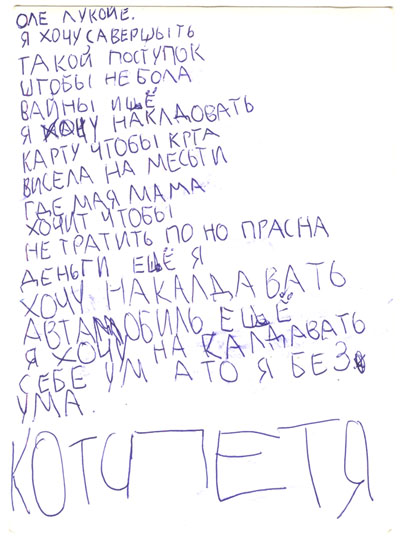 ОЛЕ ЛУКОЙЕ.
Я ХОЧУ САВЕРШЫТЬ
ТАКОЙ ПОСТУПОК
ШТОБЫ НЕ БОЛА
ВАЙНЫ ИЩЁ
Я ХОЧУ НАКЛДОВАТЬ
КАРТУ ЧТОБЫ КРТА
ВИСЕЛА НА МЕСЬТИ
ГДЕ МАЯ МАМА
ХОЧИТ ЧТОБЫ
НЕ ТРАТИТЬ ПО НО ПРАСНА
ДЕНЬГИ ЕЩЁ Я
ХОЧУ НАКАЛДАВАТЬ
АВТАМОБИЛЬ ЕЩЁ
Я ХОЧУ НА КАЛДАВАТЬ
СЕБЕ УМ А ТО Я БЕЗ
УМА.
КОТ ПЕТЯ